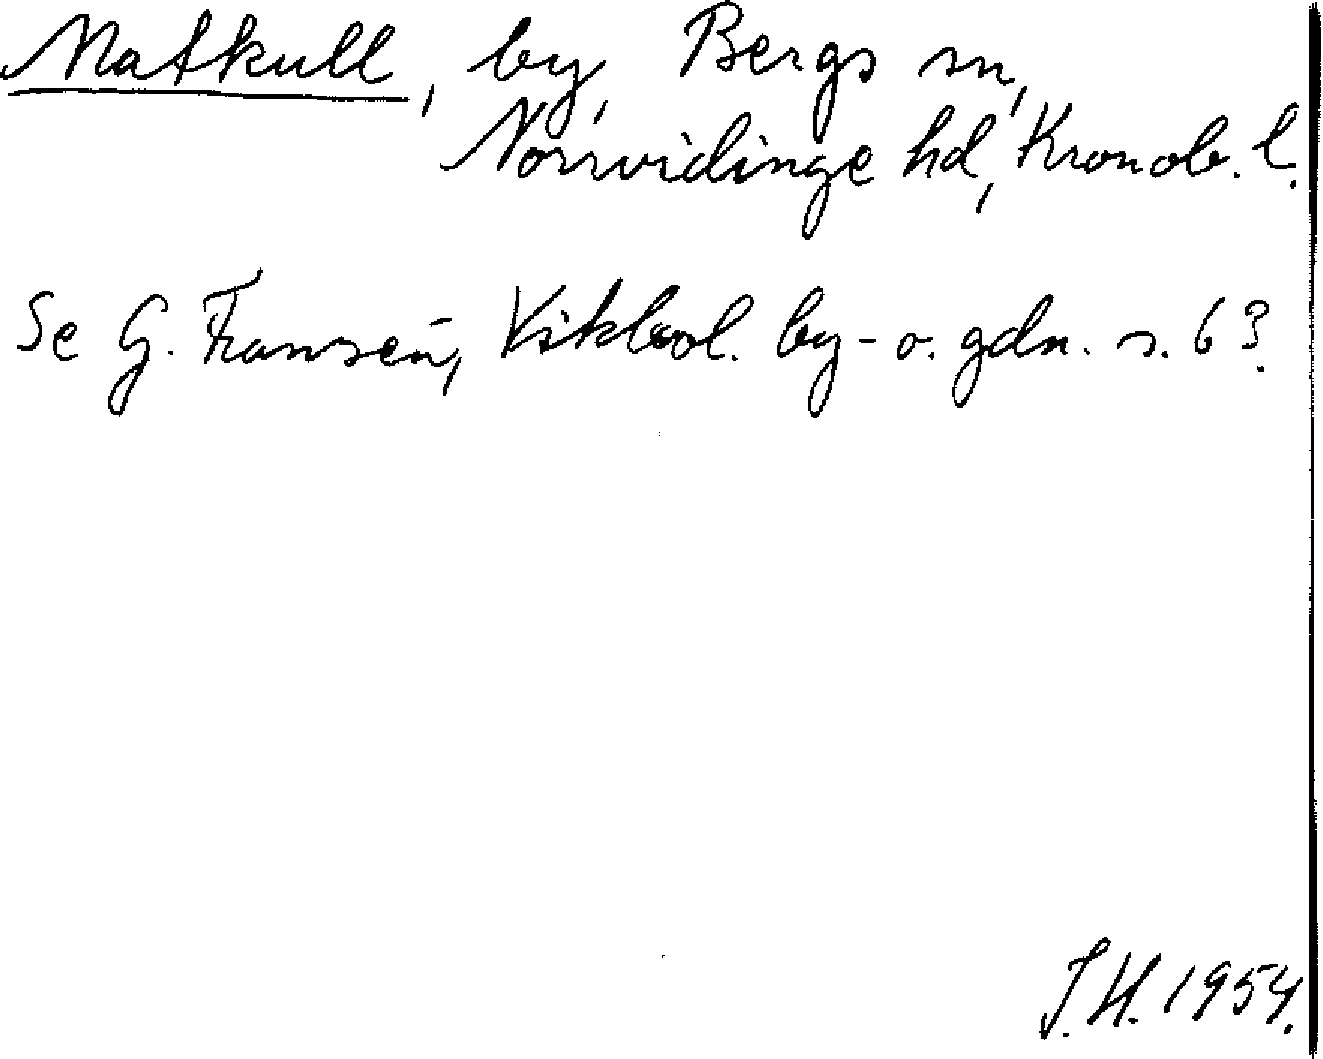 Matkull, by, Bergs sn,
Norrvidinge hd, Kronob. l.
Se G. Fransén, Vikbol. by- o. gdn. s. 63.
J.H. 1954.